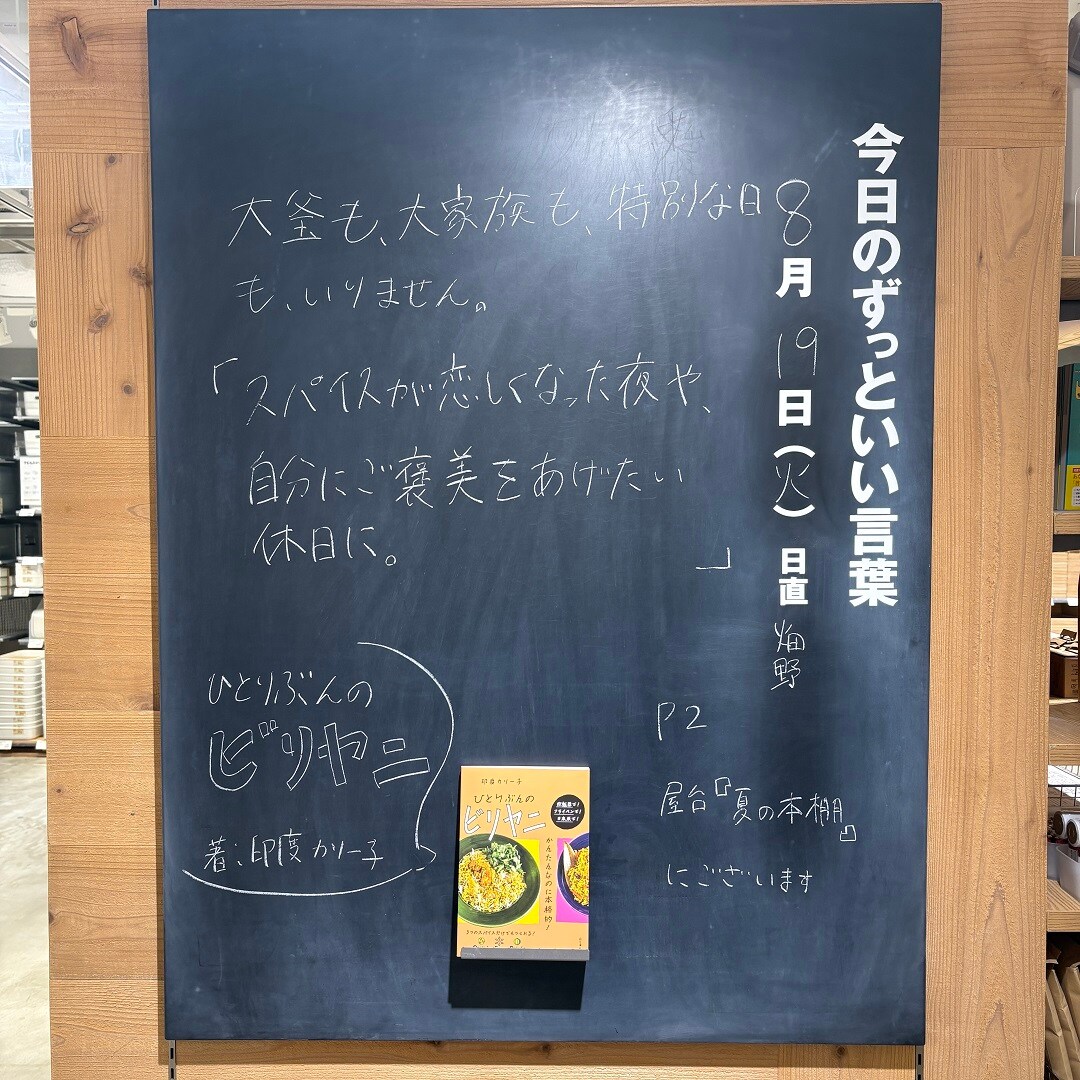 今日のずっといい言葉
8月19日(火) 日直 畑野
大釜も、大家族も、特別な日
も、いりません。
「スパイスが恋しくなった夜や、
自分にご褒美をあげたい
休日に。」
ひとりぶんの
ビリヤニ
著:印度カリー子
P2
屋台『夏の本棚』
にございます
印度カリー子
ひとりぶんの
ビリヤニ
炊飯器で!
フライパンで!
かんたんなのに本格的!
3つのスパイスだけでもつくれる!